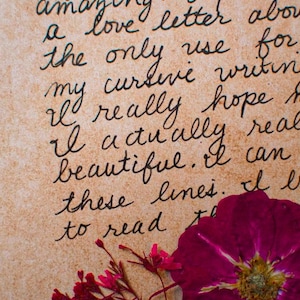 amazing
a love letter abou
the only use for
my cursive writin
I really hope
I actually real
beautiful. I can
these lines. I
to read th